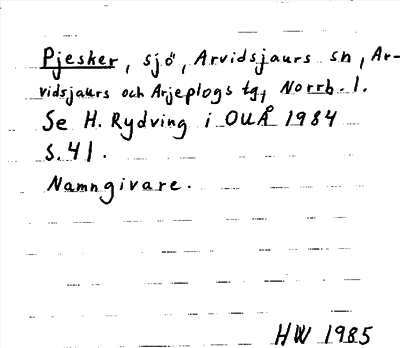 Pjesker, sjö, Arvidsjaurs sn, Ar-
vidsjaurs och Arjeplogs tg, Norrb. l.
Se H. Rydving i OUÅ 1984
s. 41.
Namngivare.
HW 1985